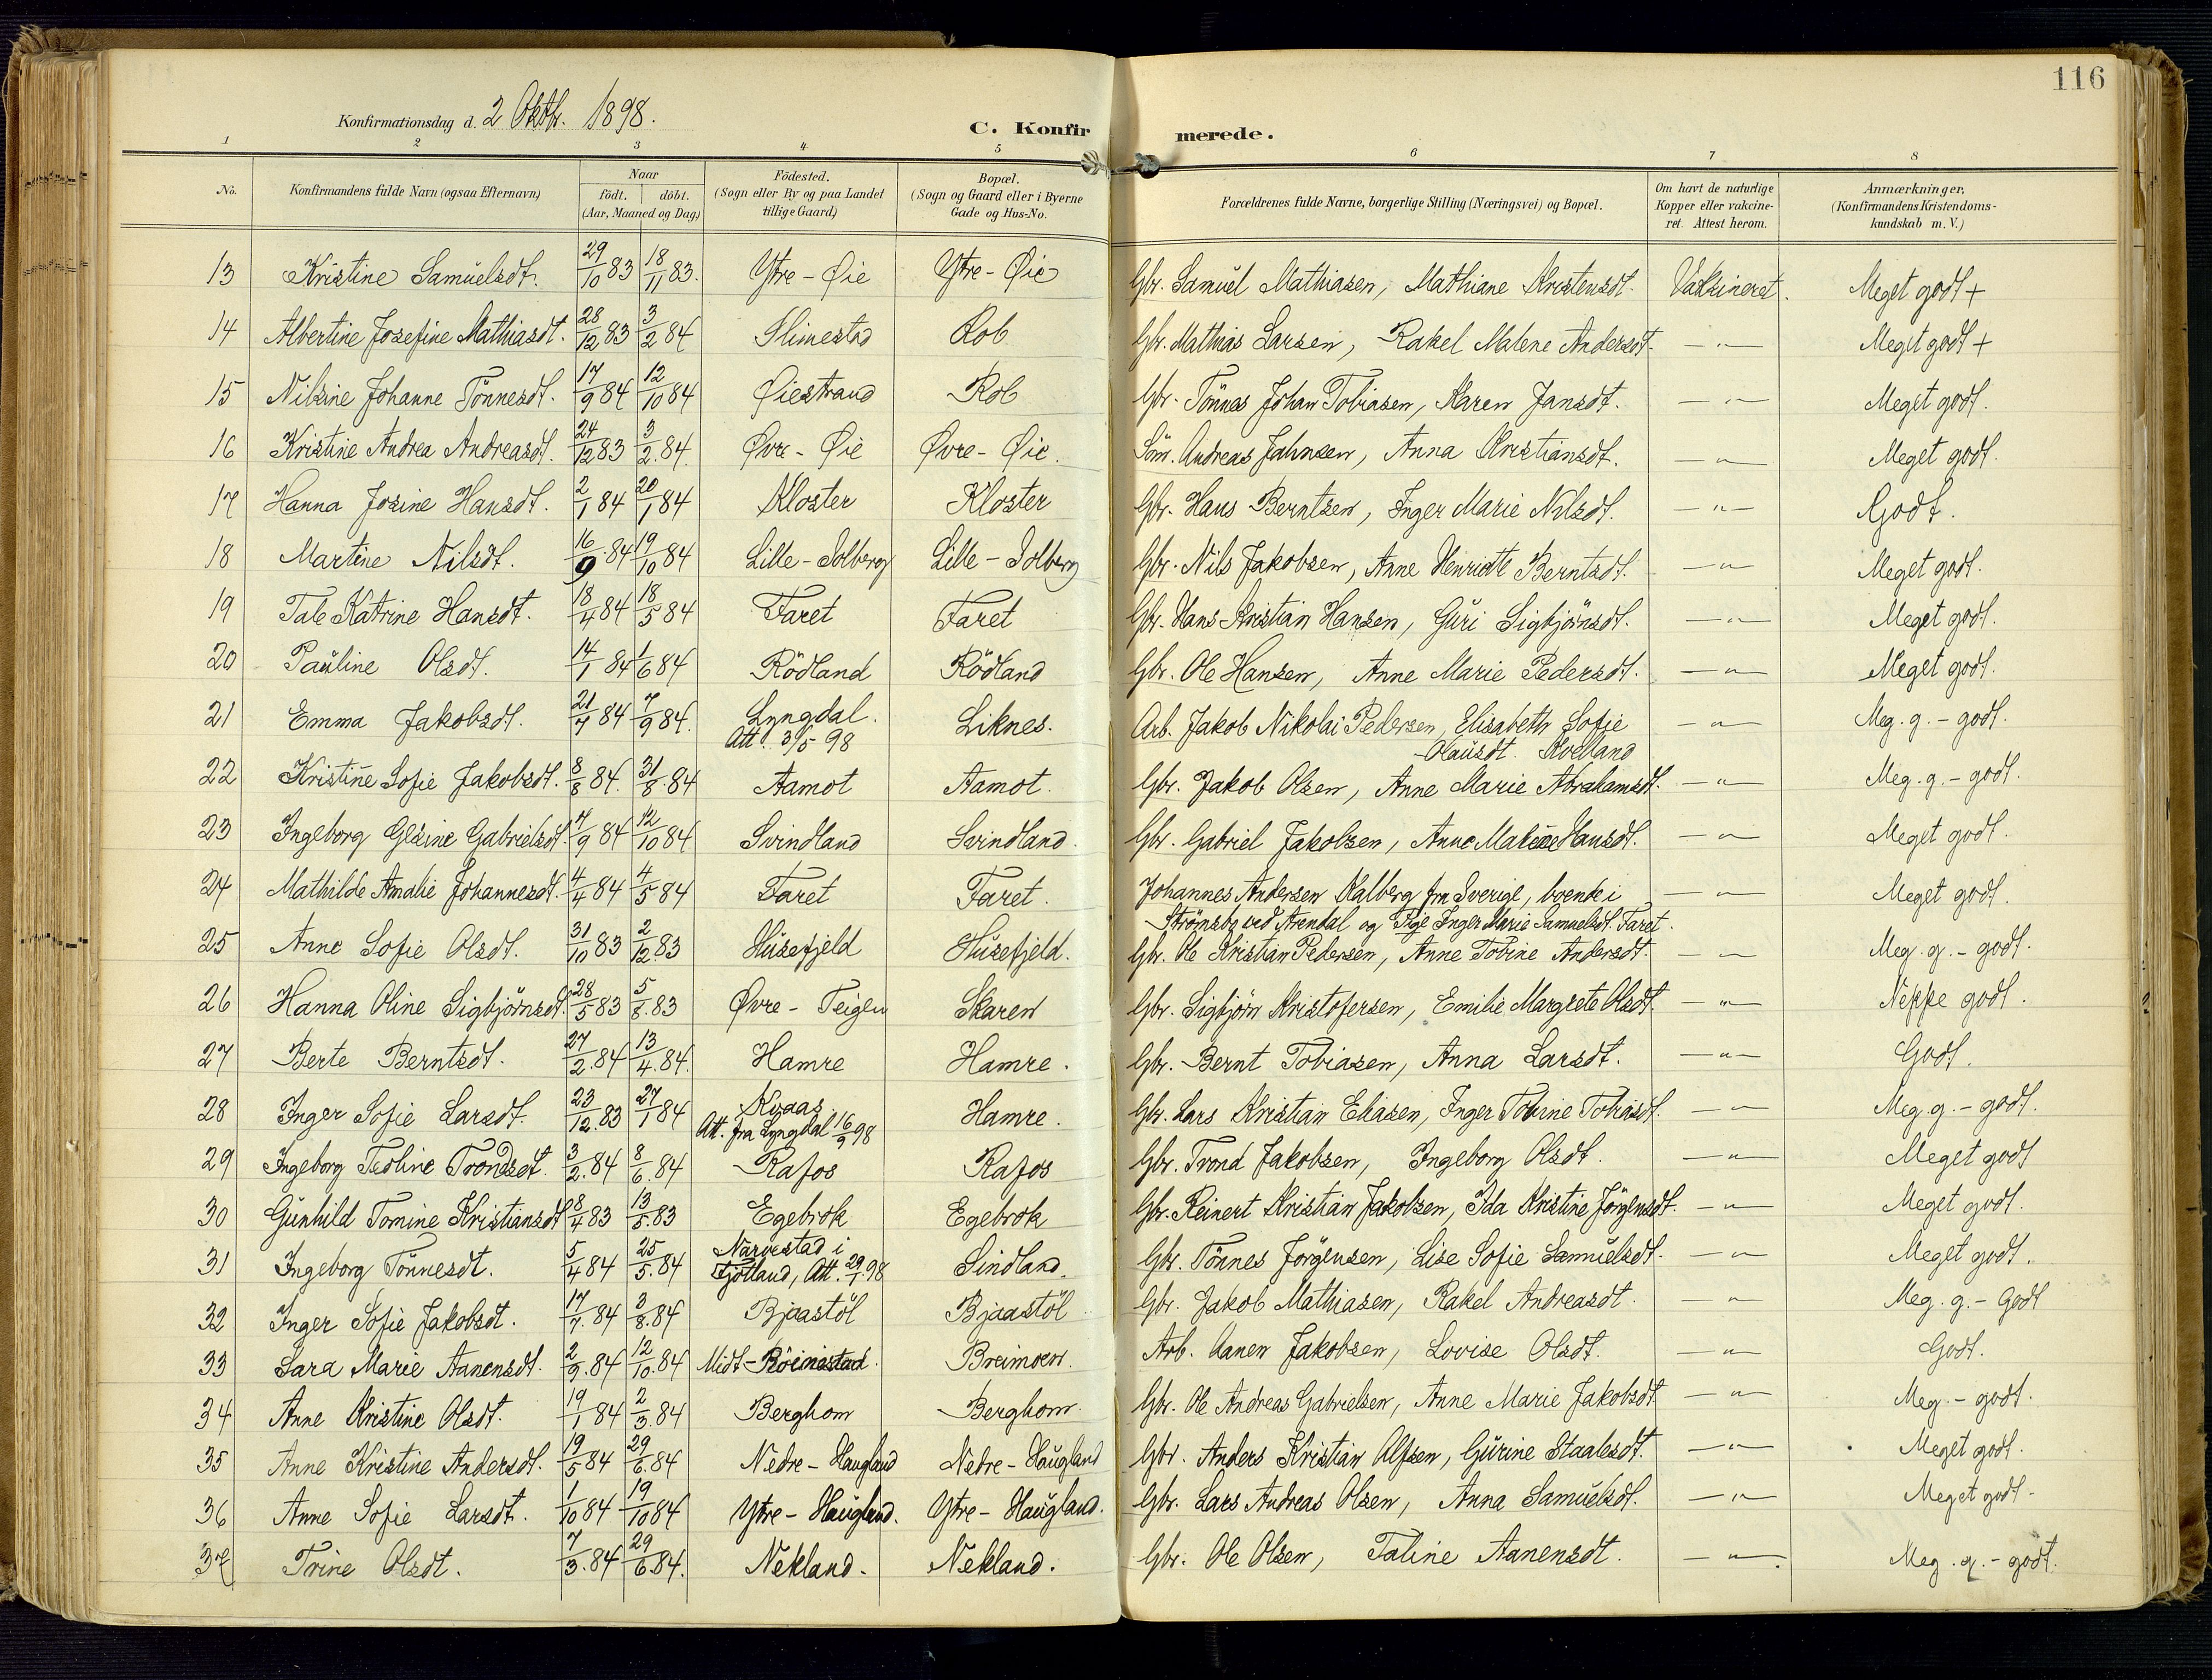 116
Konfirmationsdag d. 2 Oktbr. 1898.
C. Konfir merede.
1 2 3 4 5 6 7 8
No. Konfirmandens fulde Navn (ogsaa Efternavn) Naar födt. döbt. (Aar, Maaned og Dag) Födested. (Sogn eller By og paa Landet tillige Gaard) Bopæl. (Sogn og Gaard eller i Byerne Gade og Hus-No. Forældrenes fulde Navne, borgerlige Stilling (Næringsvei) og Bopæl. Om havt de naturlige Kopper eller vakcineret. Attest herom. Anmærkninger, (Konfirmandens Kristendomskundskab m. V.)
13 Kristine Samuelsdt. 29/10 83 18/11 83. Ytre - Øie Ytre - Øie Gbr. Samuel Mathiasen, Mathiane Kristensdt. Vaksineret. Meget godt +
14 Albertine Josefine Mathiasdt. 28/12 83 3/2 84 Slimestad Rob Gbr. Mathias Larsen, Rakel Malene Andersdt. — " — Meget godt +
15 Nilsine Johanne Tönnesdt. 17/9 84 12/10 84 Øiestrand Rob Gbr. Tönnes Johan Tobiasen, Karen Jansdt. — " — Meget godt.
16 Kristine Andrea Andreasdt. 24/12 83 3/2. 84. Øvre - Øie Øvre - Øie. Andreas Jahnsen, Anna Kristiansdt. — " — Meget godt.
17 Hanna Josine Hansdt. 2/1 84 20/1 84 Kloster Kloster Gbr. Hans Berntsen, Inger Marie Nilsdt. — " — Godt.
18 Martine Nilsdt. 16/9 84 19/10 84 Lille - Solberg Lille - Solberg Gbr. Nils Jakobsen, Anne Henriette Berntsdt. — " — Meget godt.
19 Tale Katrine Hansdt. 18/4 84 18/5 84 Faret Faret Gbr. Hans Kristian Hansen, Guri Sigbjörnsdt. — " — Meget godt.
20 Pauline Olsdt. 14/1 84 1/6 84 Rödland Rödland Gbr. Ole Hansen, Anne Marie Pedersdt. — " — Meget godt.
21 Emma Jakobsdt. 21/7 84 7/9 84. Lyngdal. Liknes. Arb. Jakob Nikolai Pedersen, Elisabeth Sofie — " — Meg. g. - godt.
Att. 3/5 98 Olausdt. Kvelland
22 Kristine Sofie Jakobsdt. 8/8 84. 31/8. 84 Aamot Aamot. Gbr. Jakob Olsen, Anne Marie Abrahamsdt. — " — Meg. g. - godt.
23 Ingeborg Glesine Gabrielsdt. 7/9 84 12/10 84 Svindland Svindland. Gbr. Gabriel Jakobsen, Anne Hansdt. — " — Meget godt.
24 Mathilde Amalie Johannesdt. 4/4 84 4/5 84 Faret Faret. Johannes Andersen Kalberg fra Sverige, boende i — " — Meget godt.
Strömsbo ved Arendal og Pige Inger Marie Samuelsdt. Faret.
25 Anne Sofie Olsdt. 31/10 83 2/12 83 Husefjeld Husefjeld. Gbr. Ole Kristian Pedersen, Anne Tobine Andersdt. — " — Meg. g. - godt.
26 Hanna Oline Sigbjörnsdt. 28/5 83 5/8. 83 Øvre - Teigen Skaren Gbr. Sigbjörn Kristofersen, Emilie Margrete Olsdt. — " — Neppe godt.
27 Berte Berntsdt. 27/2. 84 13/4. 84. Hamre Hamre. Gbr. Bernt Tobiasen, Anna Larsdt. — " — Godt.
28 Inger Sofie Larsdt. 23/12. 83 27/1 84 Kvaas Hamre. Gbr. Lars Kristian Eliasen, Inger Tobine Tobiasdt. — " — Meg. g. - godt.
Att. fra Lyngdal 16/9 98
29 Ingeborg Teoline Trondsdt. 3/2. 84 8/6. 84 Rafos Rafos Gbr. Trond Jakobsen, Ingeborg Olsdt. — " — Meget godt
30 Gunhild Tomine Kristiansdt 8/4 83 13/5. 83 Egebrok Egebrok Gbr. Reinert Kristian Jakobsen, Ida Kristine Jörgensdt. — " — Meget godt.
31 Ingeborg Tönnesdt. 5/4 84 25/5. 84 Narvestad i Fjotland, Att. 29/1. 98 Sindland. Gbr. Tönnes Jörgensen, Lise Sofie Samuelsdt. — " — Meget godt.
32 Inger Sofie Jakobsdt. 17/7. 84 3/8. 84 Bjaastöl Bjaastöl Gbr. Jakob Mathiasen, Rakel Andreasdt. — " — Meg. g. - Godt
33 Sara Marie Aanensdt. 2/9. 84 12/10. 84 Midt - Röinestad. Breimoen. Arb. Aanen Jakobsen, Lovise Olsdt. — " — Godt.
34 Anne Kristine Olsdt. 19/1 84 2/3. 84 Berghom Berghom. Gbr. Ole Andreas Gabrielsen, Anne Marie Jakobsdt. — " — Meg. - godt.
35 Anne Kristine Andersdt. 19/5 84 29/6. 84 Nedre - Haugland Nedre - Haugland Gbr. Anders Kristian Alfsen, Gurine Staalesdt. — " — Meget godt.
36 Anne Sofie Larsdt. 1/10 84 19/10 84 Ytre - Haugland. Ytre - Haugland. Gbr. Lars Andreas Olsen, Anna Samuelsdt. — " — Meget godt -
37 Trine Olsdt. 7/3. 84 29/6 84. Nekland. Nekland. Gbr. Ole Olsen, Taline Aanensdt. — " — Meg. g. - godt.